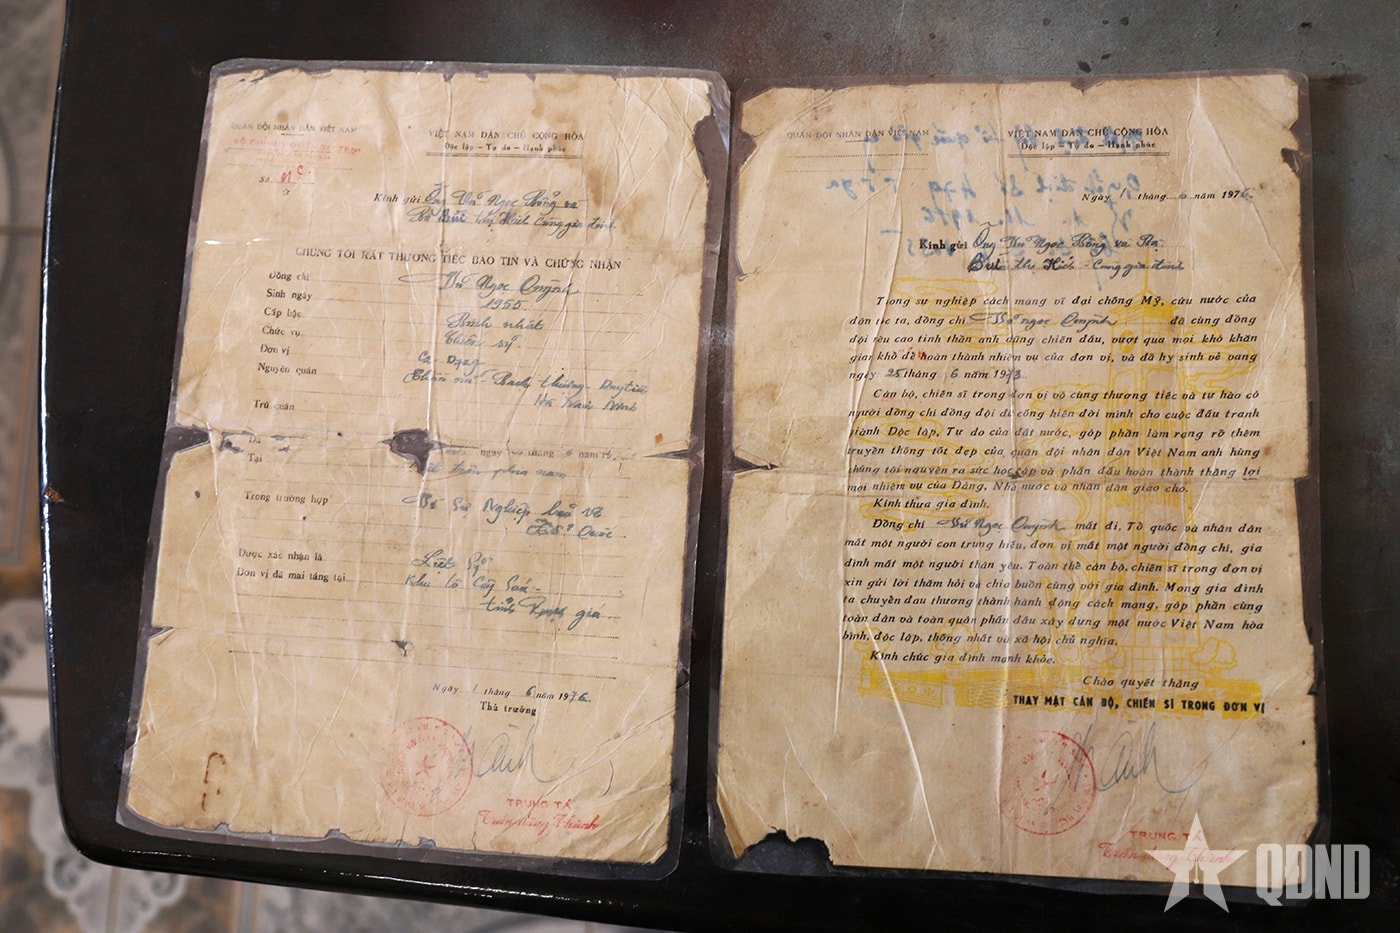 QUÂN ĐỘI NHÂN DÂN VIỆT NAM
VIỆT NAM DÂN CHỦ CỘNG HÒA
Độc lập - Tự do - Hạnh phúc
Số
Kính gửi Ông Vũ Ngọc Bổng và
Bà Bùi thị Hích cùng gia đình
CHÚNG TÔI RẤT THƯƠNG TIẾC BÁO TIN VÀ CHỨNG NHẬN
Đồng chí Vũ Ngọc Quỳnh
Sinh ngày 1955
Cấp bậc Binh nhất
Chức vụ Chiến sỹ
Đơn vị
Nguyên quán Bạch thượng Duy tiên
Hà Nam Ninh
Trú quán
Đã ngày tháng năm
Tại
Trong trường hợp Vì Sự Nghiệp bảo vệ
Tổ Quốc
Được xác nhận là Liệt Sỹ
Đơn vị đã mai táng tại Khu
tỉnh
Ngày 1 tháng 6 năm 1976
Thủ trưởng
TRUNG TÁ
QUÂN ĐỘI NHÂN DÂN VIỆT NAM
VIỆT NAM DÂN CHỦ CỘNG HÒA
Độc lập - Tự do - Hạnh phúc
Ngày 1 tháng 6 năm 1976
Kính gửi Ông Vũ Ngọc Bổng và Bà
Bùi thị Hích - Cùng gia đình
Trong sự nghiệp cách mạng vĩ đại chống Mỹ, cứu nước của
dân tộc ta, đồng chí Vũ ngọc Quỳnh đã cùng đồng
đội nêu cao tinh thần anh dũng chiến đấu, vượt qua mọi khó khăn
gian khổ để hoàn thành nhiệm vụ của đơn vị, và đã hy sinh vẻ vang
ngày 25 tháng 6 năm 1973
Cán bộ, chiến sĩ trong đơn vị vô cùng thương tiếc và tự hào có
người đồng chí đồng đội đã cống hiến đời mình cho cuộc đấu tranh
giành Độc lập, Tự do của đất nước, góp phần làm rạng rỡ thêm
truyền thống tốt đẹp của quân đội nhân dân Việt Nam anh hùng
chúng tôi nguyện ra sức học tập và phấn đấu hoàn thành thắng lợi
mọi nhiệm vụ của Đảng, Nhà nước và nhân dân giao cho.
Kính thưa gia đình.
Đồng chí Vũ Ngọc Quỳnh mất đi, Tổ quốc và nhân dân
mất một người con trung hiếu, đơn vị mất một người đồng chí, gia
đình mất một người thân yêu. Toàn thể cán bộ, chiến sĩ trong đơn vị
xin gửi lời thăm hỏi và chia buồn cùng với gia đình. Mong gia đình
ta chuyển đau thương thành hành động cách mạng, góp phần cùng
toàn dân và toàn quân phấn đấu xây dựng một nước Việt Nam hòa
bình, độc lập, thống nhất và xã hội chủ nghĩa.
Kính chúc gia đình mạnh khỏe.
Chào quyết thắng
THAY MẶT CÁN BỘ, CHIẾN SĨ TRONG ĐƠN VỊ
TRUNG TÁ
QĐND